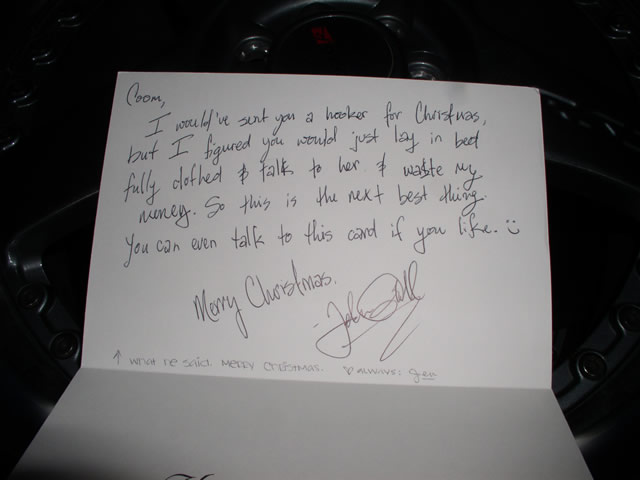 Coom,
I would've sent you a hooker for Christmas,
but I figured you would just lay in bed
fully clothed & talk to her & waste my
money. So this is the next best thing.
You can even talk to this card if you like. :)
Merry Christmas.
↑ what he said. merry christmas. ♡ always: gen